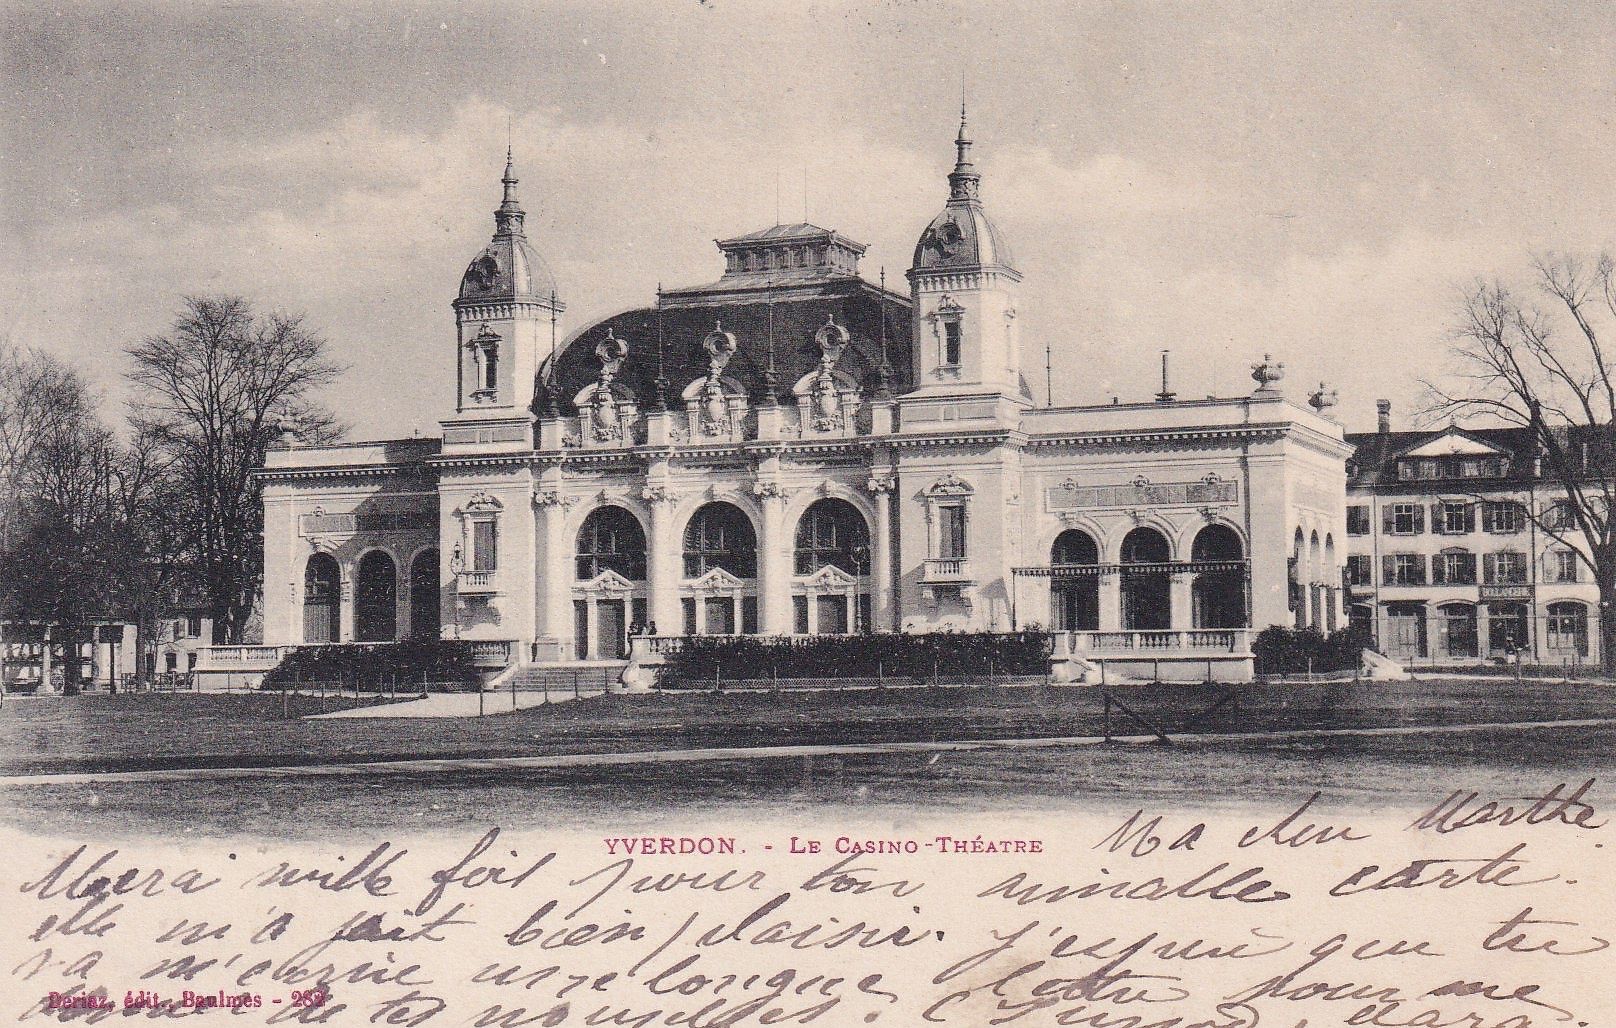 YVERDON. - LE CASINO-THÉATRE
Ma cher Marthe.
Merci mille fois pour ton aimable carte.
elle m'a fait bien plaisir. J'espère que tu
va m'écrire une longue lettre pour me
Deriaz, édit., Baulmes - 282
donner de tes nouvelles.